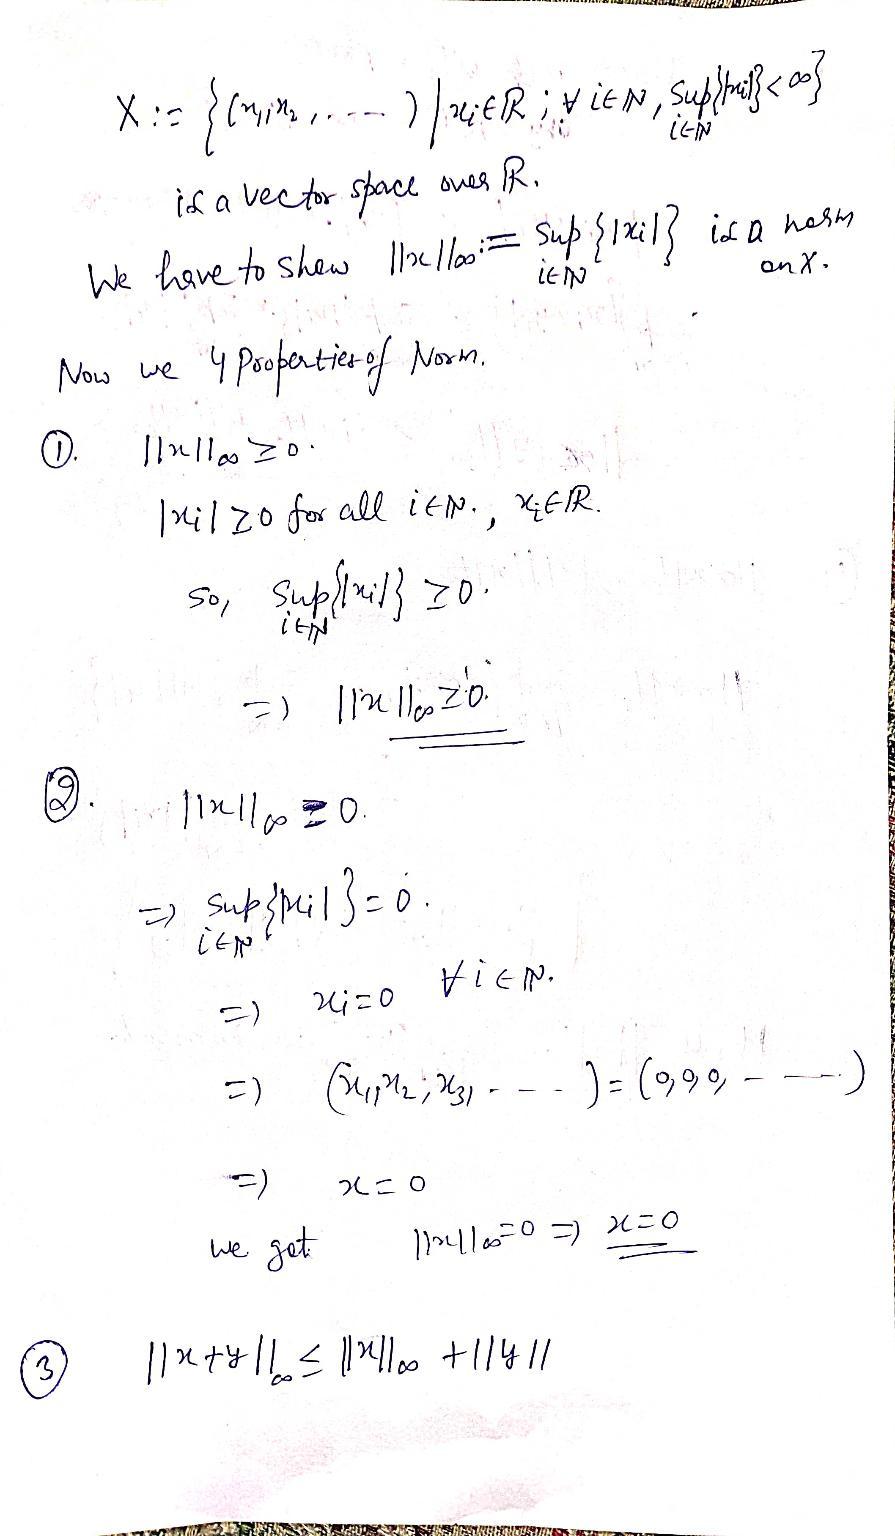 X := {(x₁,x₂,.....) | xᵢ∈ℝ ; ∀ i∈ℕ, Sup{|xᵢ|}<∞}
i∈ℕ
is a vector space over ℝ.
We have to show ||x||∞ := Sup {|xᵢ|} is a norm
i∈ℕ on X.
Now we 4 Properties of Norm.
①. ||x||∞ ≥0.
|xᵢ| ≥0 for all i∈ℕ., xᵢ∈ℝ.
So, Sup{|xᵢ|} ≥0.
i∈ℕ
=) ||x||∞ ≥0.
②. ||x||∞ = 0.
=) Sup{|xᵢ|}=0.
i∈ℕ
=) xᵢ=0 ∀ i∈ℕ.
=) (x₁,x₂,x₃, - - - )=(0,0,0, - - -)
=) x=0
we get ||x||∞=0 =) x=0
③ ||x+y||∞ ≤ ||x||∞ +||y||